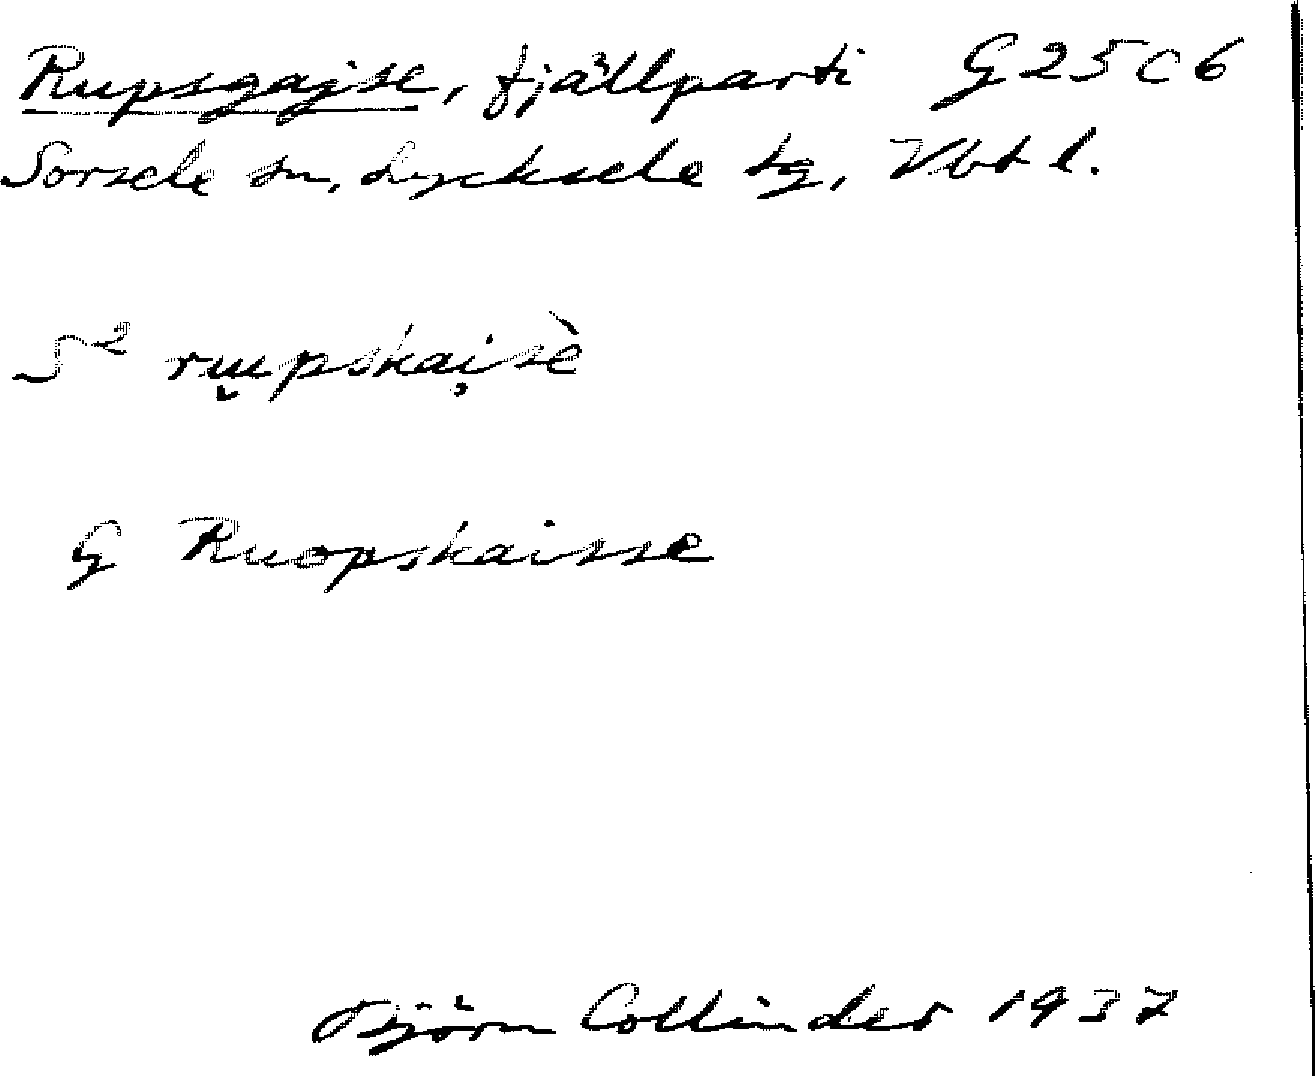 Rupsgajse, fjällparti G 25 C 6
Sorsele sn, Lycksele tg, Vbtl.
S² ru̯upskai̥sè
G Ruopskaisse
Björn Collinder 1937